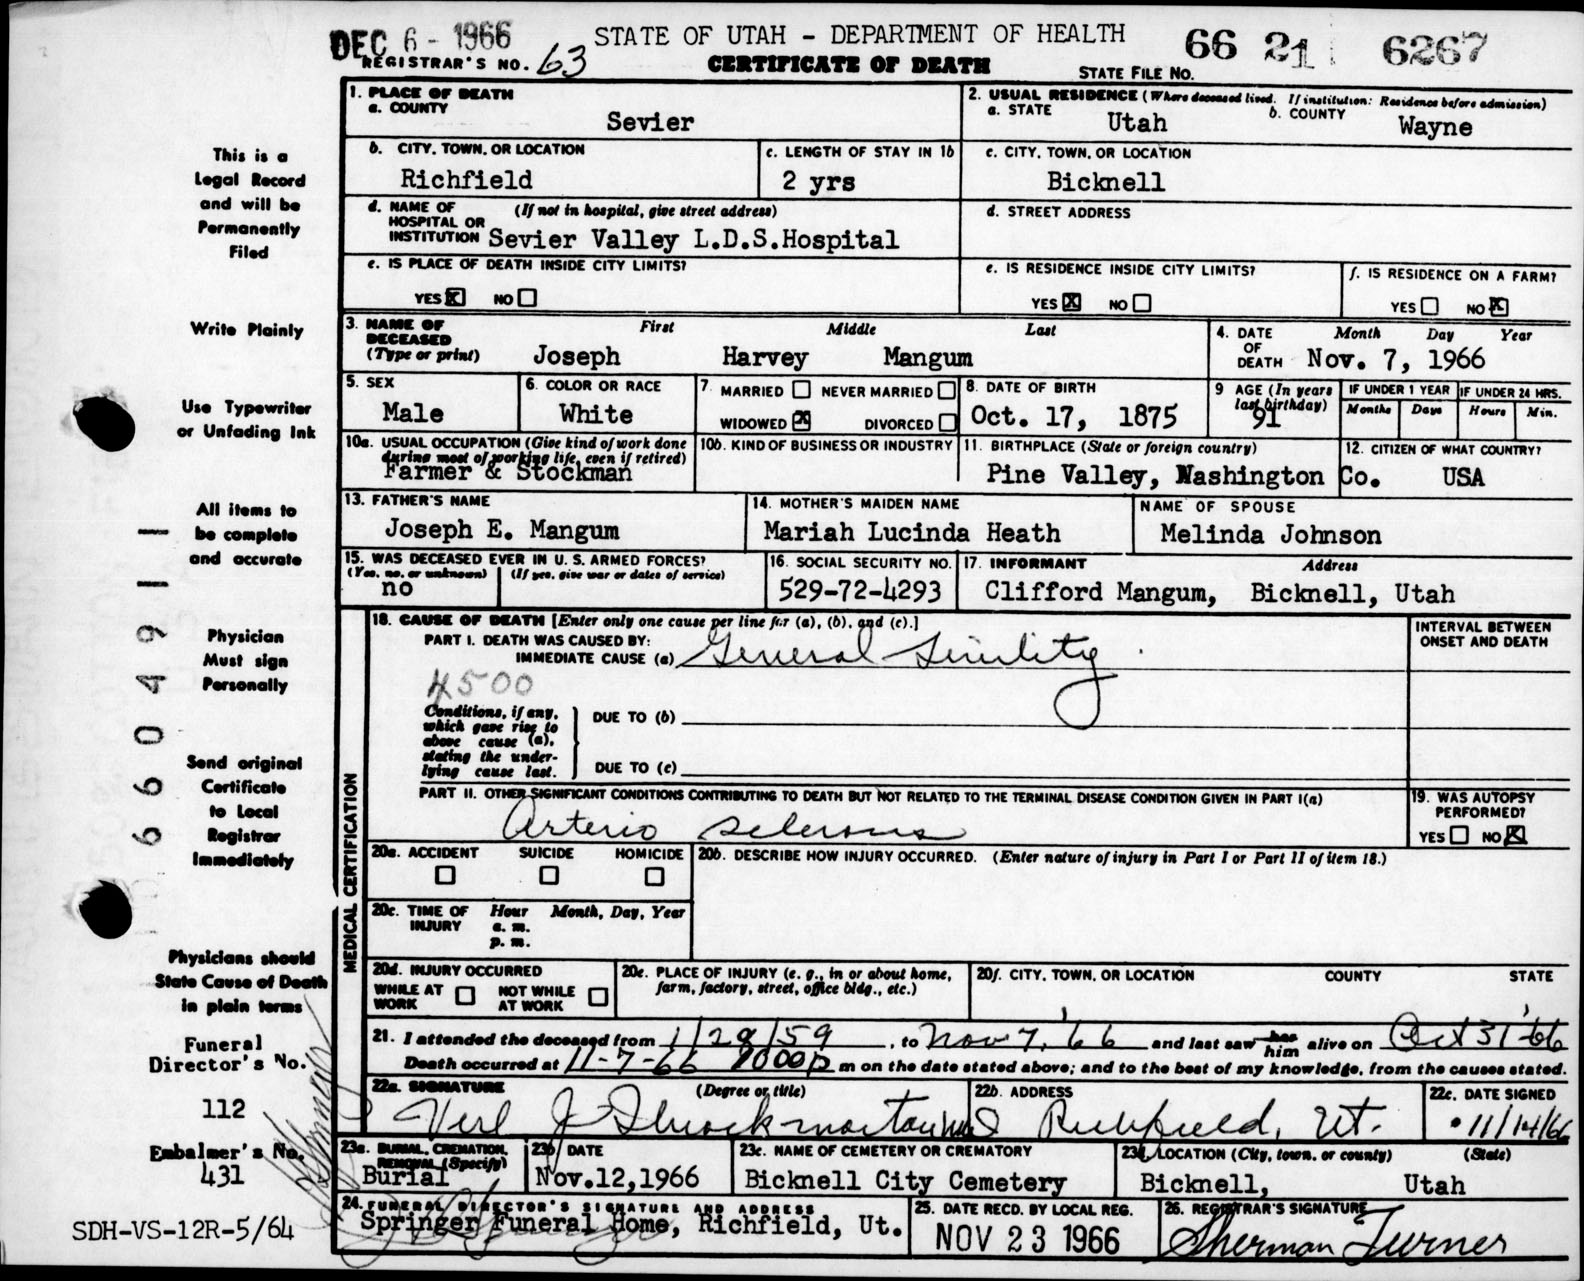 DEC 6 - 1966
STATE OF UTAH - DEPARTMENT OF HEALTH
66 21 6267
REGISTRAR'S NO. 63
CERTIFICATE OF DEATH
STATE FILE NO.
This is a
Legal Record
and will be
Permanently
Filed
Write Plainly
Use Typewriter
or Unfading Ink
All items to
be complete
and accurate
Physician
Must sign
Personally
Send original
Certificate
to Local
Registrar
Immediately
Physicians should
State Cause of Death
in plain terms
Funeral
Director's No.
112
Embalmer's No.
431
SDH-VS-12R-5/64
660491
1. PLACE OF DEATH
a. COUNTY
Sevier
2. USUAL RESIDENCE (Where deceased lived. If institution: Residence before admission)
a. STATE Utah b. COUNTY Wayne
b. CITY, TOWN, OR LOCATION
Richfield
c. LENGTH OF STAY IN 1b
2 yrs
c. CITY, TOWN, OR LOCATION
Bicknell
d. NAME OF HOSPITAL OR INSTITUTION (If not in hospital, give street address)
Sevier Valley L.D.S.Hospital
d. STREET ADDRESS
e. IS PLACE OF DEATH INSIDE CITY LIMITS?
YES X NO
e. IS RESIDENCE INSIDE CITY LIMITS?
YES X NO
f. IS RESIDENCE ON A FARM?
YES NO X
3. NAME OF DECEASED (Type or print)
First Middle Last
Joseph Harvey Mangum
4. DATE OF DEATH
Month Day Year
Nov. 7, 1966
5. SEX
Male
6. COLOR OR RACE
White
7. MARRIED NEVER MARRIED
WIDOWED X DIVORCED
8. DATE OF BIRTH
Oct. 17, 1875
9 AGE (In years last birthday)
91
IF UNDER 1 YEAR
Months Days
IF UNDER 24 HRS.
Hours Min.
10a. USUAL OCCUPATION (Give kind of work done during most of working life, even if retired)
Farmer & Stockman
10b. KIND OF BUSINESS OR INDUSTRY
11. BIRTHPLACE (State or foreign country)
Pine Valley, Washington Co.
12. CITIZEN OF WHAT COUNTRY?
USA
13. FATHER'S NAME
Joseph E. Mangum
14. MOTHER'S MAIDEN NAME
Mariah Lucinda Heath
NAME OF SPOUSE
Melinda Johnson
15. WAS DECEASED EVER IN U. S. ARMED FORCES?
(Yes, no, or unknown) (If yes, give war or dates of service)
no
16. SOCIAL SECURITY NO.
529-72-4293
17. INFORMANT Address
Clifford Mangum, Bicknell, Utah
18. CAUSE OF DEATH [Enter only one cause per line for (a), (b), and (c).]
PART I. DEATH WAS CAUSED BY:
IMMEDIATE CAUSE (a) General Sinility
INTERVAL BETWEEN ONSET AND DEATH
4500
Conditions, if any,
which gave rise to
above cause (a),
stating the under-
lying cause last.
DUE TO (b)
DUE TO (c)
PART II. OTHER SIGNIFICANT CONDITIONS CONTRIBUTING TO DEATH BUT NOT RELATED TO THE TERMINAL DISEASE CONDITION GIVEN IN PART I(a)
Arterio sclerosis
19. WAS AUTOPSY PERFORMED?
YES NO X
MEDICAL CERTIFICATION
20a. ACCIDENT SUICIDE HOMICIDE
20b. DESCRIBE HOW INJURY OCCURRED. (Enter nature of injury in Part I or Part II of item 18.)
20c. TIME OF INJURY Hour Month, Day, Year
a. m.
p. m.
20d. INJURY OCCURRED
WHILE AT WORK NOT WHILE AT WORK
20e. PLACE OF INJURY (e. g., in or about home, farm, factory, street, office bldg., etc.)
20f. CITY, TOWN, OR LOCATION COUNTY STATE
21. I attended the deceased from 1/28/59, to Nov 7, '66 and last saw him alive on Oct 31 '66
Death occurred at 11-7-66 1000p m on the date stated above; and to the best of my knowledge, from the causes stated.
22a. SIGNATURE (Degree or title)
Verl J
22b. ADDRESS
Richfield, Ut.
22c. DATE SIGNED
11/14/66
23a. BURIAL, CREMATION, REMOVAL (Specify)
Burial
23b. DATE
Nov.12,1966
23c. NAME OF CEMETERY OR CREMATORY
Bicknell City Cemetery
23d. LOCATION (City, town, or county) (State)
Bicknell, Utah
24. FUNERAL DIRECTOR'S SIGNATURE AND ADDRESS
Springer Funeral Home, Richfield, Ut.
25. DATE RECD. BY LOCAL REG.
NOV 23 1966
26. REGISTRAR'S SIGNATURE
Sherman Turner